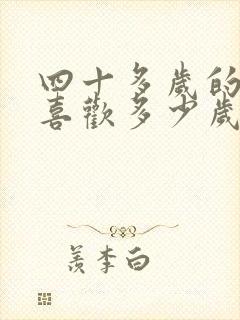 四十多歲的
喜歡多少歲
羨李白